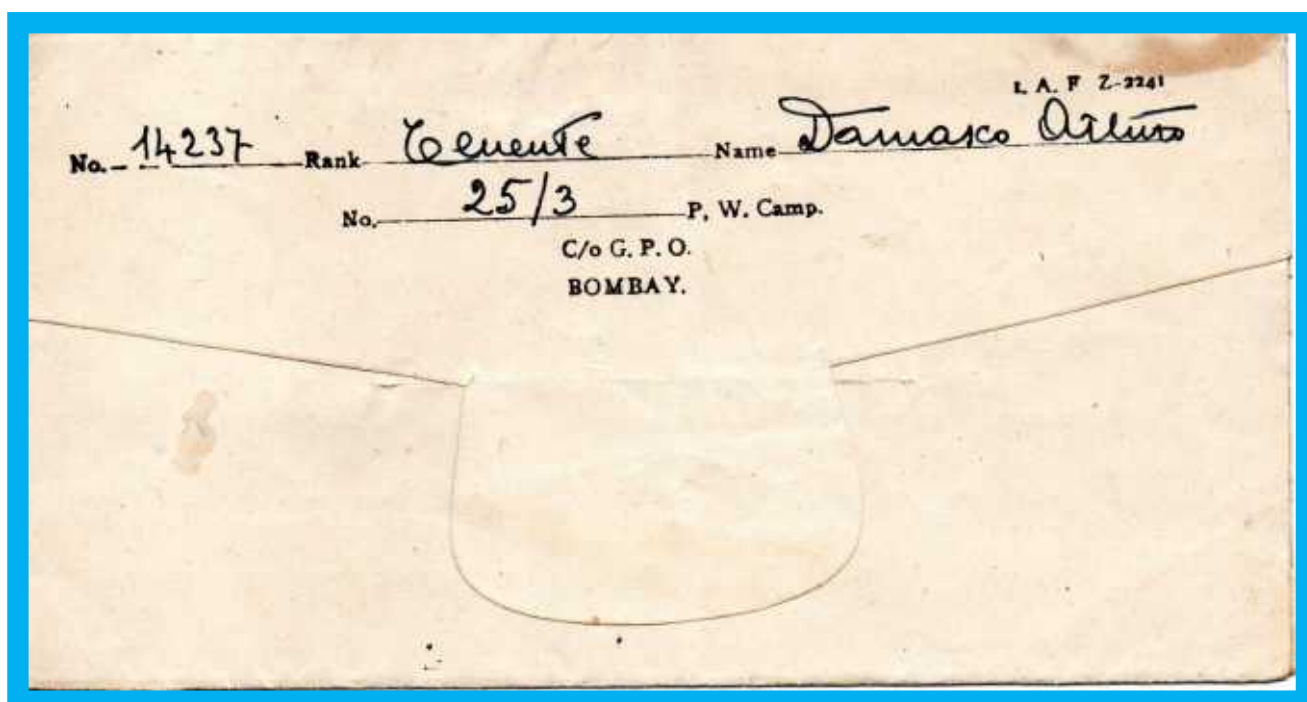 I. A. F Z-2241
No. 14237 Rank Tenente Name Damasco Arturo
No. 25/3 P. W. Camp.
C/o G. P. O.
BOMBAY.